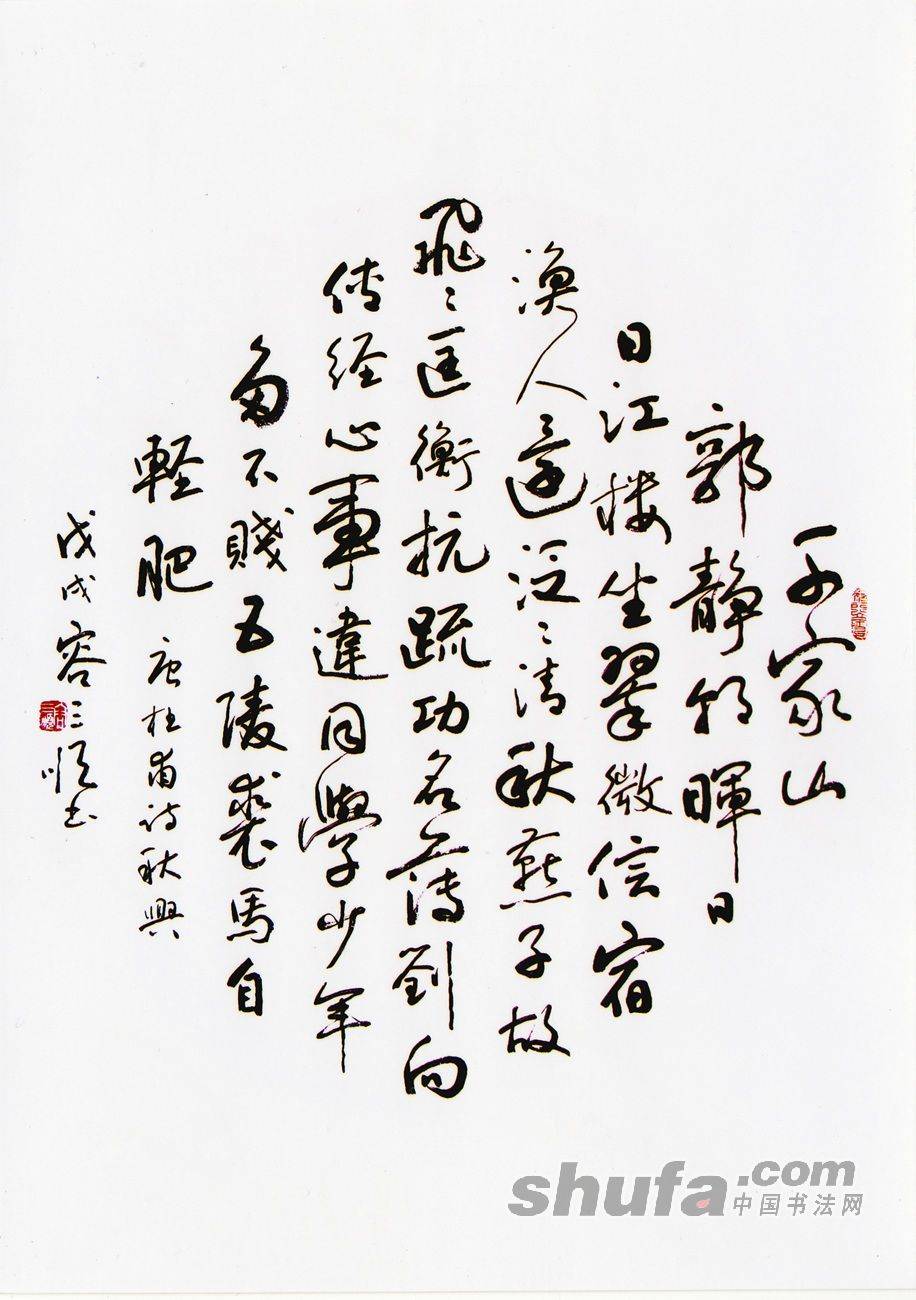 千家山
郭静朝暉日
日江楼坐翠微信宿
漁人還泛〻清秋燕子故
飛〻匡衡抗疏功名薄劉向
傳经心事違同學少年
多不賤五陵裘馬自
軽肥
唐杜甫诗秋興
戊戌容三順书
shufa.com
中国书法网